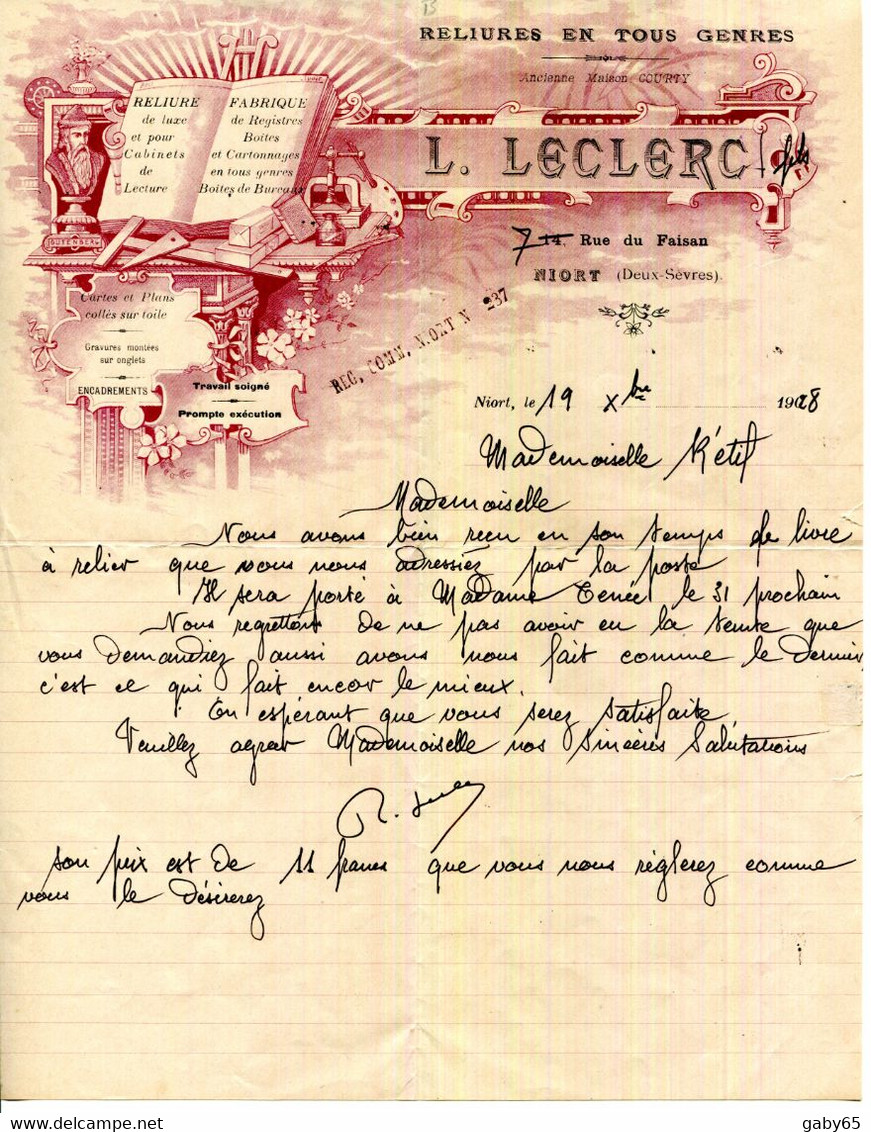 RELIURES EN TOUS GENRES
Ancienne Maison COURTY
L. LECLERC fils
7 14, Rue du Faisan
NIORT (Deux-Sèvres).
RELIURE
de luxe
et pour
Cabinets
de
Lecture
FABRIQUE
de Registres
Boîtes
et Cartonnages
en tous genres
Boîtes de Bureaux
GUTENBERG
Cartes et Plans
collés sur toile
Gravures montées
sur onglets
ENCADREMENTS
Travail soigné
Prompte exécution
REG. COMM. NIORT N 237
Niort, le 19 Xbre 1928
Mademoiselle Rétif
Mademoiselle
Nous avons bien reçu en son temps le livre
à relier que vous nous adressiez par la poste
Il sera porté à Madame le 31 prochain
Nous regrettons de ne pas avoir eu la teinte que
vous demandiez aussi avons nous fait comme le dernier
c'est ce qui fait encor le mieux.
En espérant que vous serez satisfaite
Veuillez agréer Mademoiselle nos sincères salutations
son prix est de 11 francs que vous nous règlerez comme
vous le désirerez
gaby65